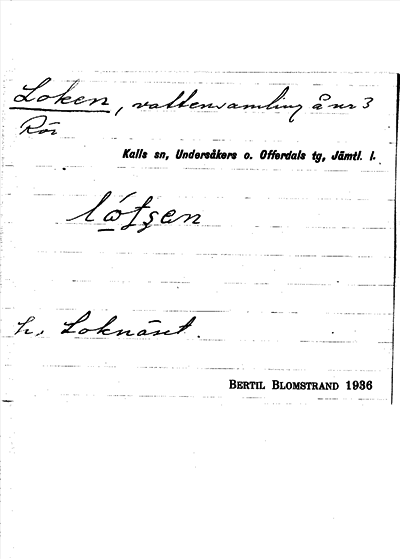 Loken, vattensamling å nr 3
Rör
Kalls sn, Undersåkers o. Offerdals tg, Jämtl. l.
h. Loknäset.
BERTIL BLOMSTRAND 1936